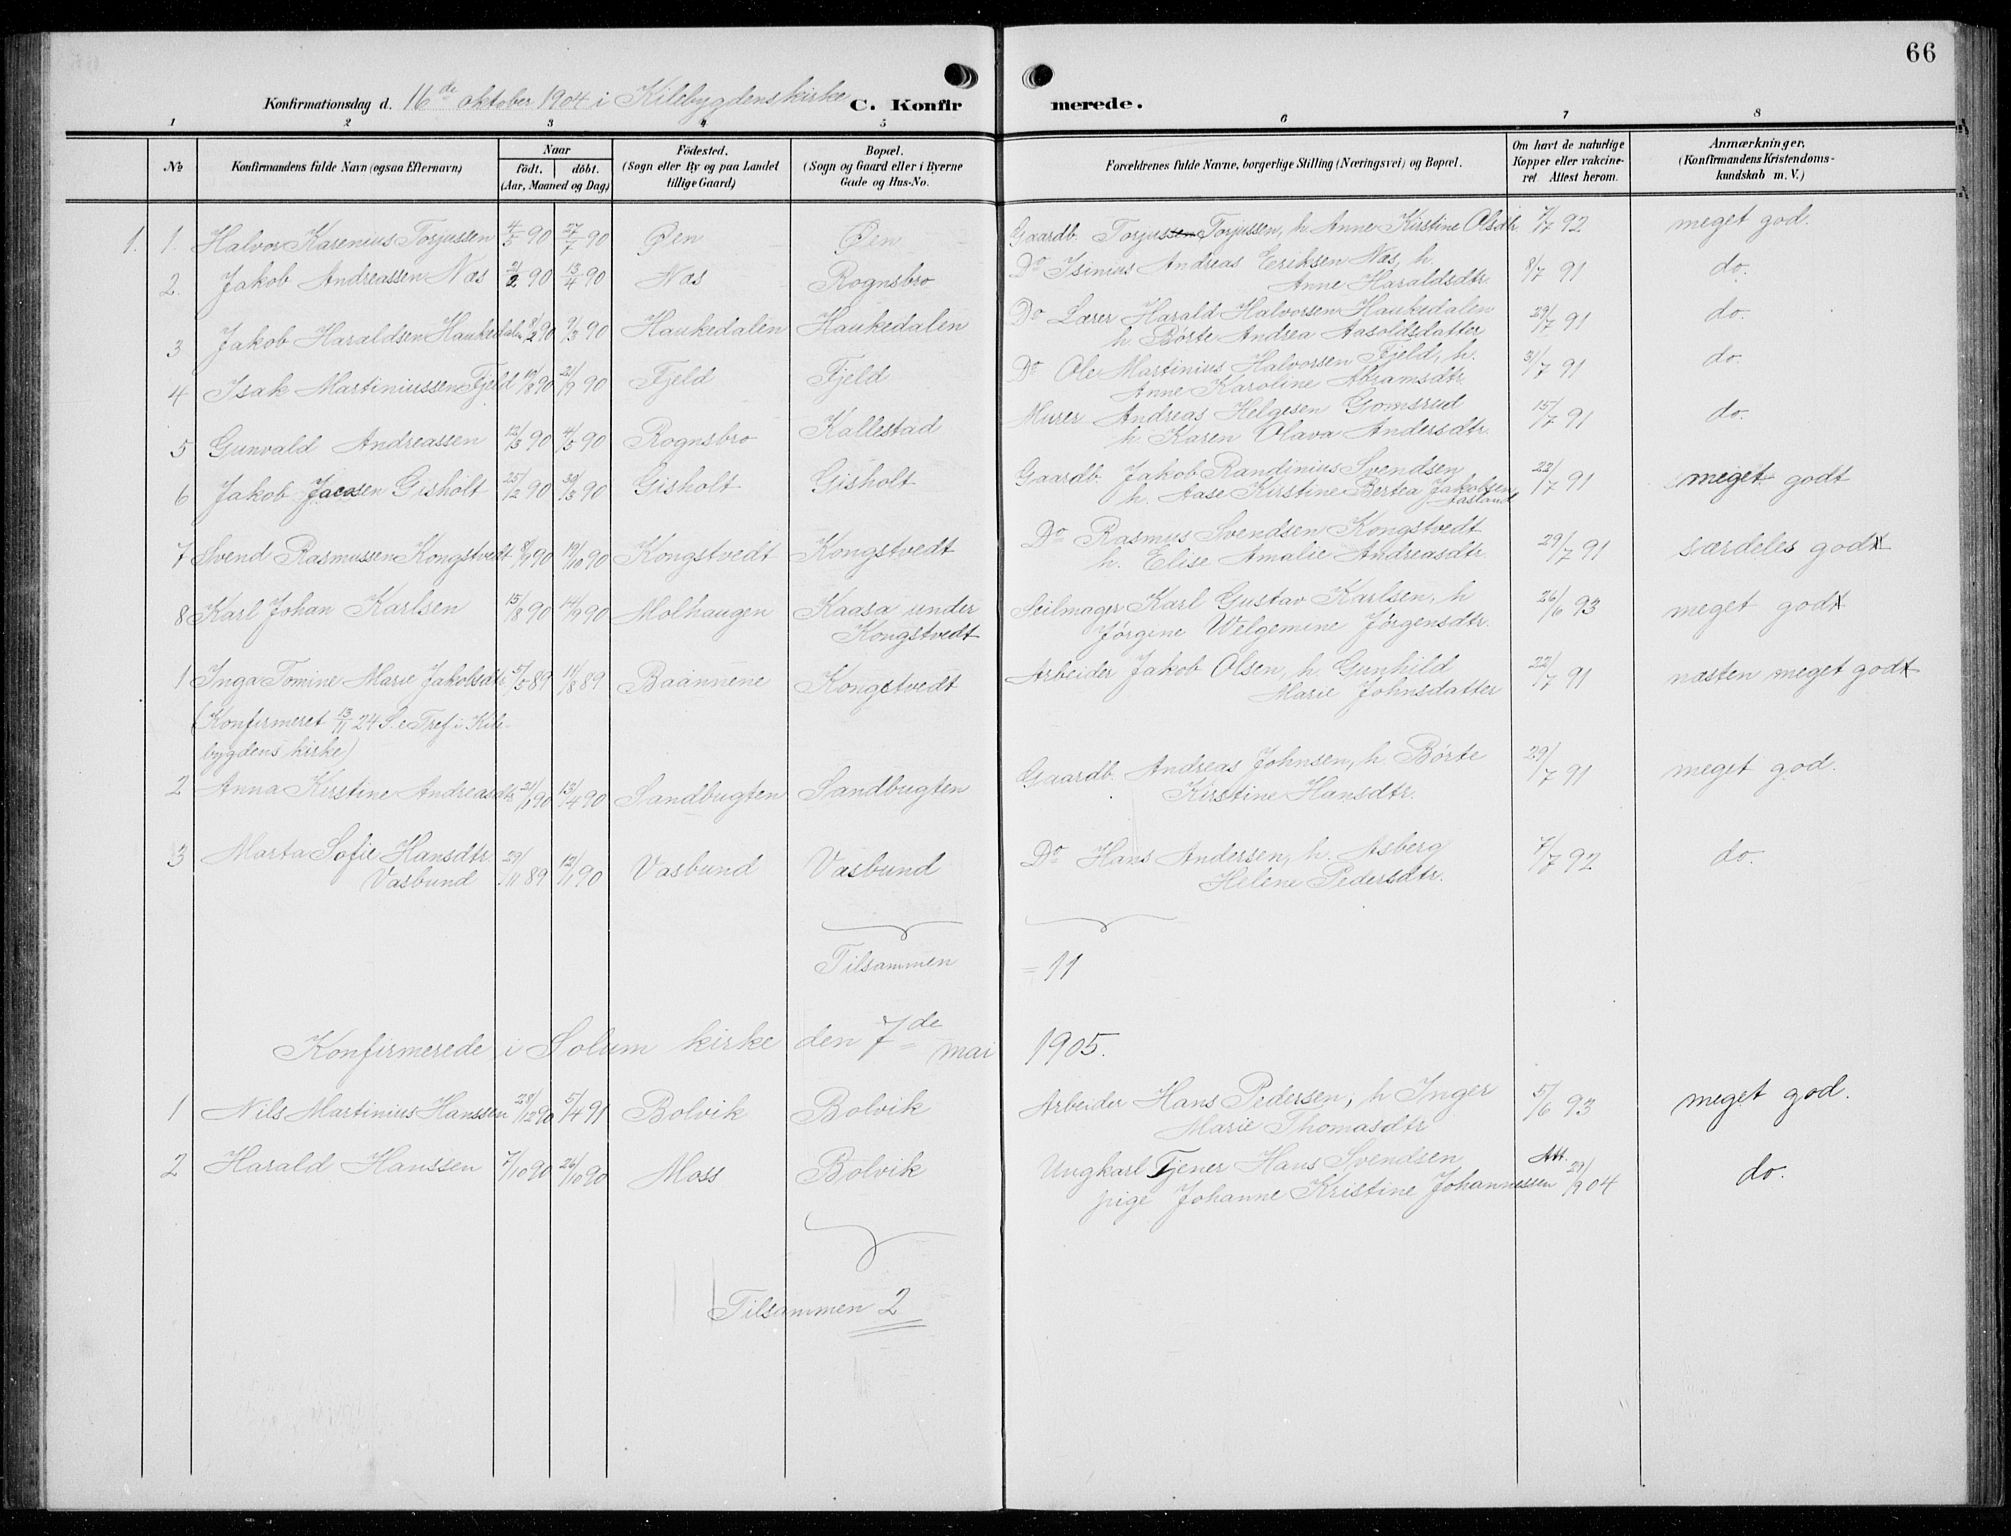 66
Konfirmationsdag d. 16de oktober 1904 i Kilebygdens kirke C. Konfirmerede.
1 2 3 4 5 6 7 8
No Konfirmandens fulde Navn (ogsaa Efternavn) Naar födt. döbt. (Aar, Maaned og Dag) Födested. (Sogn eller By og paa Landet tillige Gaard) Bopæl. (Sogn og Gaard eller i Byerne Gade og Hus-No. Forældrenes fulde Navne, borgerlige Stilling (Næringsvei) og Bopæl. Om havt de naturlige Kopper eller vakcineret Attest herom. Anmærkninger, (Konfirmandens Kristendomskundskab m. V.)
1. 1. Halvor Karenius Torjussen 4/5 90 27/7 90 Øen Øen Gaardb. Torjussen Torjussen, h. Anne Kirstine Olsdtr 7/7 92 meget god.
2. Jakob Andreassen Næs 21/2 90 13/4 90 Næs Rognsbro Do Isinius Andreas Eriksen Næs, h. 8/7 91 do.
Anne Haraldsdtr.
3 Jakob Haraldsen Haukedalen 8/2 90 9/3 90 Haukedalen Haukedalen Do Lærer Harald Halvorsen Haukedalen 29/7 91 do.
h. Børte Andrea Aasoldsdatter
4 Isak Martiniussen Fjeld 19/8 90 21/9 90 Fjeld Fjeld Do Ole Martinius Halvorsen Fjeld, h. 31/7 91 do.
Anne Karoline Abramsdtr.
5 Gunvald Andreassen 12/3 90 4/5 90 Rognsbro Kallestad Murer Andreas Helgesen Gomsrud 15/7 91 do.
h. Karen Olava Andersdtr.
6 Jakob Jacosen Gisholt 25/2 90 30/3 90 Gisholt Gisholt Gaardb. Jakob Randinius Svendsen 22/7 91 meget godt
h. Aase Kirstine Bertea Jakobsen
Aasland
7 Svend Rasmussen Kongstvedt 8/9 90 19/10 90 Kongstvedt Kongstvedt Do Rasmus Svendsen Kongstvedt 29/7 91 særdeles godt
h. Elise Amalie Andreasdtr.
8 Karl Johan Karlsen 15/8 90 14/9 90 Molhaugen Kaasa under Seilmager Karl Gustav Karlsen, h 26/6 93 meget godt
Kongstvedt Jørgine Welgemine Jørgensdtr.
1 Inga Tomine Marie Jakobsdtr. 5/5 89 11/8 89 Baannene Kongstvedt Arbeider Jakob Olsen, h. Gunhild 22/7 91 næsten meget godt
Marie Johnsdatter
(Konfirmeret 13/11 24 S. e. Tref. i Kile-
bygdens kirke)
2 Anna Kirstine Andreasdtr. 21/1 90 13/4 90 Sandbugten Sandbugten Gaardb. Andreas Johnsen, h. Børte 29/7 91 meget god.
Kirstine Hansdtr.
3 Marta Sofie Hansdtr. 29/11 89 12/1 90 Vasbund Vasbund Do Hans Andersen, h. Asberg 7/7 92 do.
Vasbund Helene Pedersdtr.
Tilsammen = 11
Konfirmerede i Solum kirke den 7de mai 1905.
1 Nils Martinius Hanssen 28/12 90 5/4 91 Bolvik Bolvik Arbeider Hans Pedersen, h Inger 5/6 93 meget god.
Marie Thomasdtr
2 Harald Hanssen 7/10 90 26/10 90 Moss Bolvik Ungkarl Tjener Hans Svendsen Att. 29/9 04 do.
pige Johanne Kristine Johannessen
Tilsammen 2